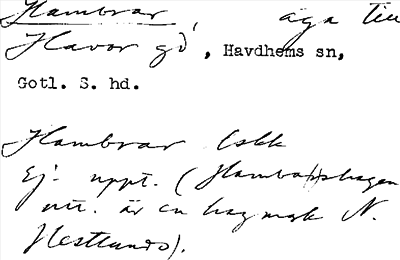 Hambrar, äga till
Havor gd, Havdhems sn,
Gotl. S. hd.
Hambrar lskk
Ej. uppt. (Hambarshagen
nu. är en hagmark N.
Hestlunds).